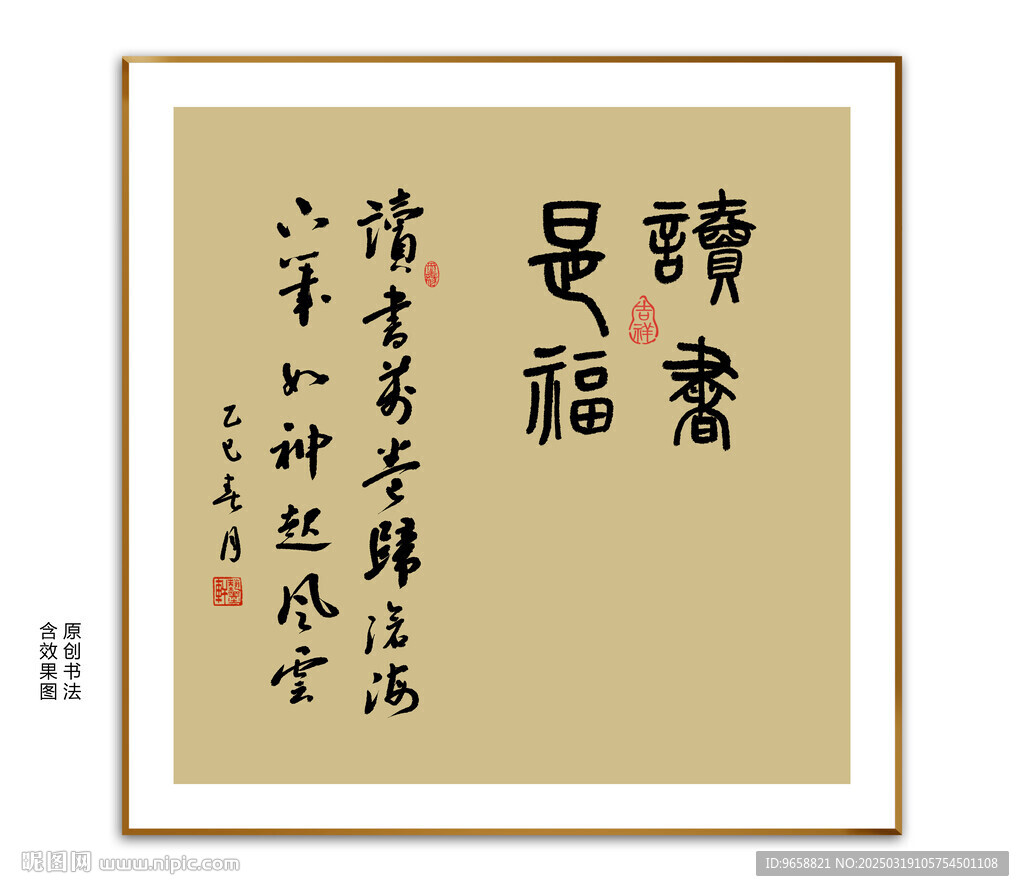 讀書
是福
吉祥
讀書萬卷歸滄海
下筆如神起風雲
乙巳春月
原创书法
含效果图
昵图网 www.nipic.com
ID:9658821 NO:20250319105754501108